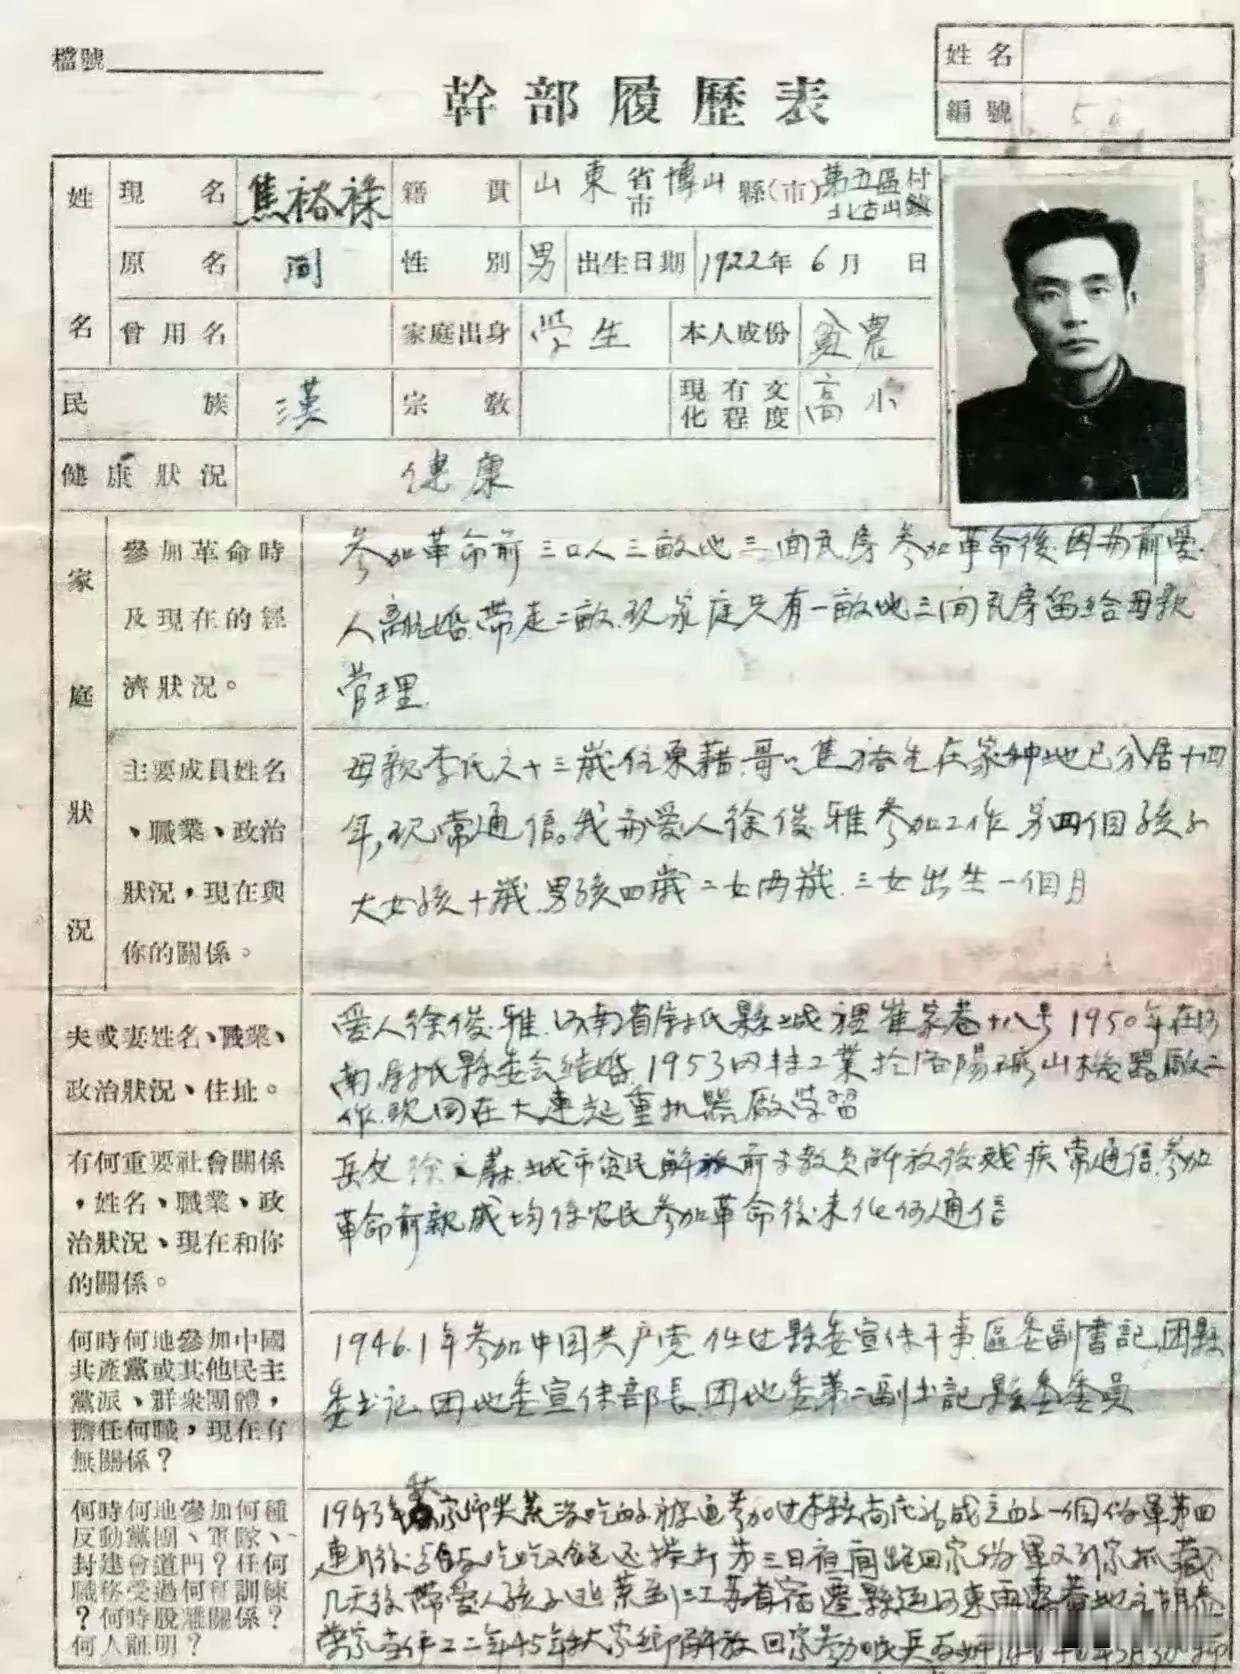 檔號
幹部履歷表
姓名
編號 5
姓名
現名 焦裕禄 籍貫 山東省市博山縣(市)第五區村鎮北古山
原名 同 性別 男 出生日期 1922年6月 日
曾用名 家庭出身 学生 本人成份 貧農
民族 漢 宗教 現有文化程度 高小
健康狀況 健康
家庭狀況
參加革命時及現在的經濟狀況。
参加革命前三口人三畝地三间瓦房参加革命後因为前爱
人離婚.帶走二畝.现家庭只有一畝地三间瓦房留给母親
管理.
主要成員姓名、職業、政治狀況，現在與你的關係。
母親李氏六十三歲住原籍.哥哥焦裕生在家种地已分居十四
年,现常通信。我和爱人徐俊雅参加工作.另四個孩子
大女孩十歲.男孩四歲二女两歲.三女出生一個月
夫或妻姓名、職業、政治狀況、住址。
爱人徐俊雅.河南省尉氏縣城裡崔家巷十八号1950年在河
南尉氏縣委会结婚.1953 工業於洛陽礦山機器厰工
作.现同在大連起重机器厰学習
有何重要社會關係，姓名、職業、政治狀況、現在和你的關係。
岳父徐 城市貧民解放前 教員解放後残疾常通信.参加
革命前親戚均係农民参加革命後未 何通信
何時何地參加中國共產黨或其他民主黨派、羣衆團體，擔任何職，現在有無關係？
1946.1年参加中国共产党任过縣委宣传干事.區委副書記.团縣
委书记.团地委宣传部長.团地委第二副书記.縣委委員
何時何地參加何種反動黨團、軍隊、封建會道門？任何職務受過何種訓練？何時脫離關係？何人證明？
1943年 家鄉 荒没吃的被逼参加过本縣 成立的一個伪軍第四
連 後 吃吃又 还挨打第三日夜間跑回家伪軍又到家抓藏
几天後帶爱人孩子逃荒到江苏省宿遷縣运河東 地主胡
家当 工二年45年 家鄉解放回家参加民兵